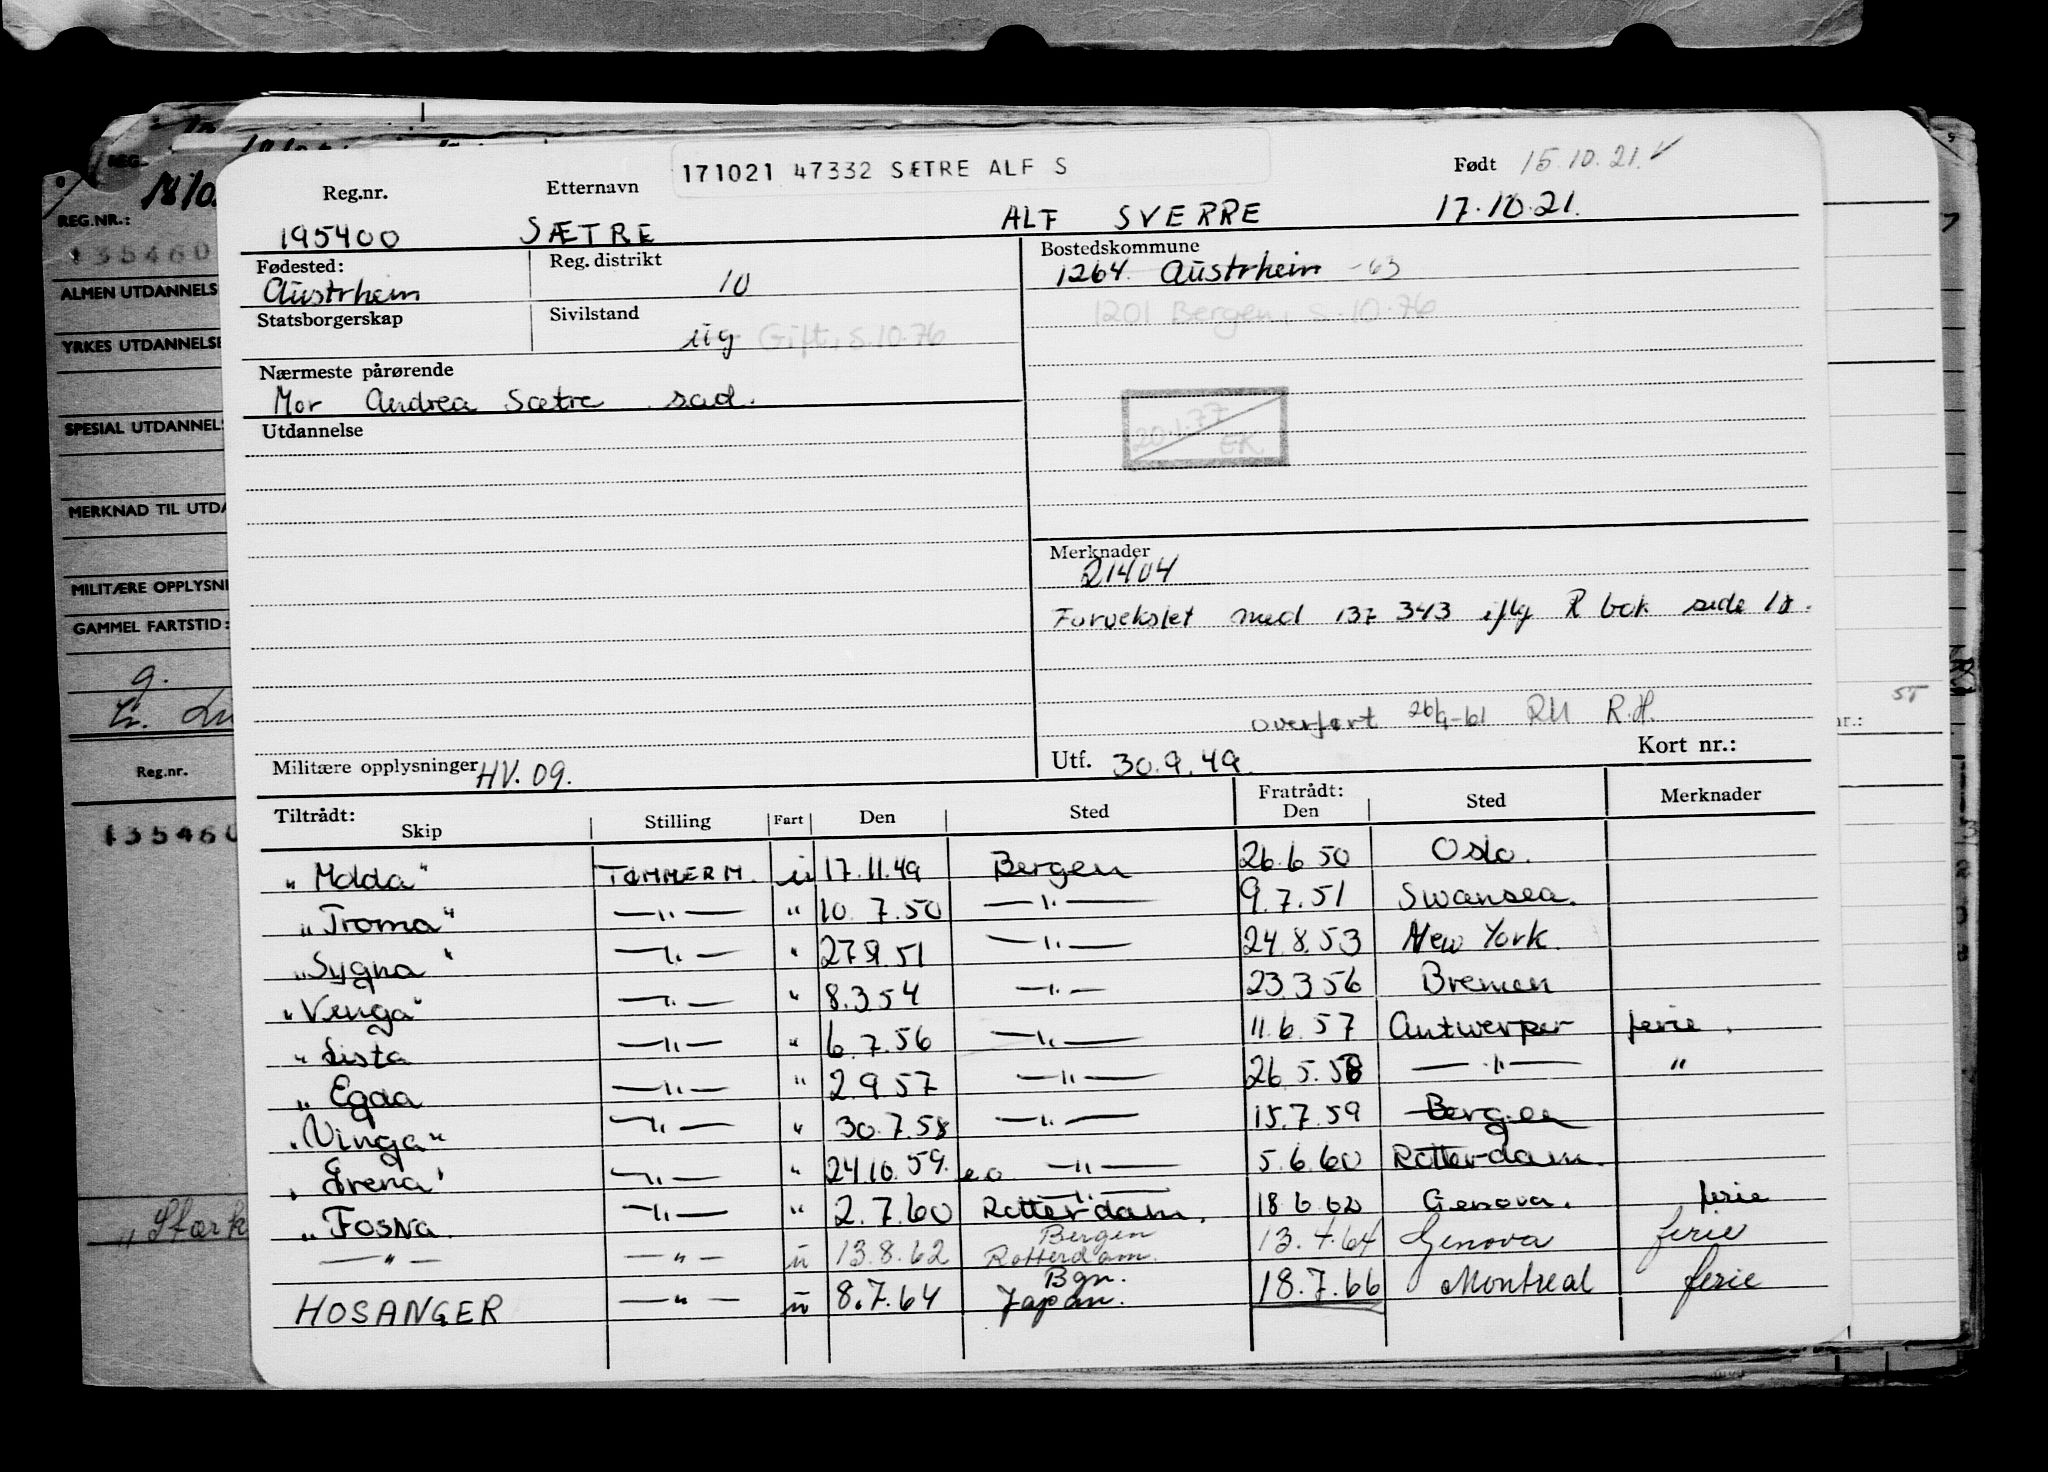 171021 47332 SÆTRE ALF S
Reg.nr. Etternavn Født 15.10.21. ✓
195400 SÆTRE ALF SVERRE 17.10.21.
Fødested: Reg. distrikt Bostedskommune
Austrheim 10 1264. Austrheim -63
Statsborgerskap Sivilstand 1201 Bergen, s. 10.76
ug Gift, s. 10.76
Nærmeste pårørende
Mor Andrea Sætre sad.
Utdannelse
20.1.77
EK
Merknader
21404
Forvekslet med 137 343 iflg R bok side 18.
overført 26/9-61 RU R.H.
Militære opplysninger HV. 09. Utf. 30.9.49. Kort nr.:
Tiltrådt: Fratrådt:
Skip Stilling Fart Den Sted Den Sted Merknader
"Molda" TØMMERM. u 17.11.49 Bergen 26.6.50 Oslo.
"Troma" —"— " 10.7.50 —"— 9.7.51 Swansea.
"Sygna" —"— " 27.9.51 —"— 24.8.53 New York.
"Venga" —"— " 8.3.54 —"— 23.3.56 Bremen
"Lista —"— " 6.7.56 —"— 11.6.57 Antwerpen ferie.
"Egda —"— " 2.9.57 —"— 26.5.58 —"— "
"Vinga" —"— " 30.7.58 —"— 15.7.59 Bergen
—"— " 24.10.59. e.o —"— 5.6.60 Rotterdam.
"Fosna —"— " 2.7.60 —"— Rotterdam. 18.6.62 Genova. ferie
—"— —"— u 13.8.62 Bergen Rotterdam. 13.4.64 Genova ferie
HOSANGER —"— u 8.7.64 Bgn. Japan. 18.7.66 Montreal ferie
REG.
REG.NR.:
135460
ALMEN UTDANNELS
YRKES UTDANNELSE
SPESIAL UTDANNELS
MERKNAD TIL UTDA
MILITÆRE OPPLYSNI
GAMMEL FARTSTID:
g.
Reg.nr.
135460
nr.: